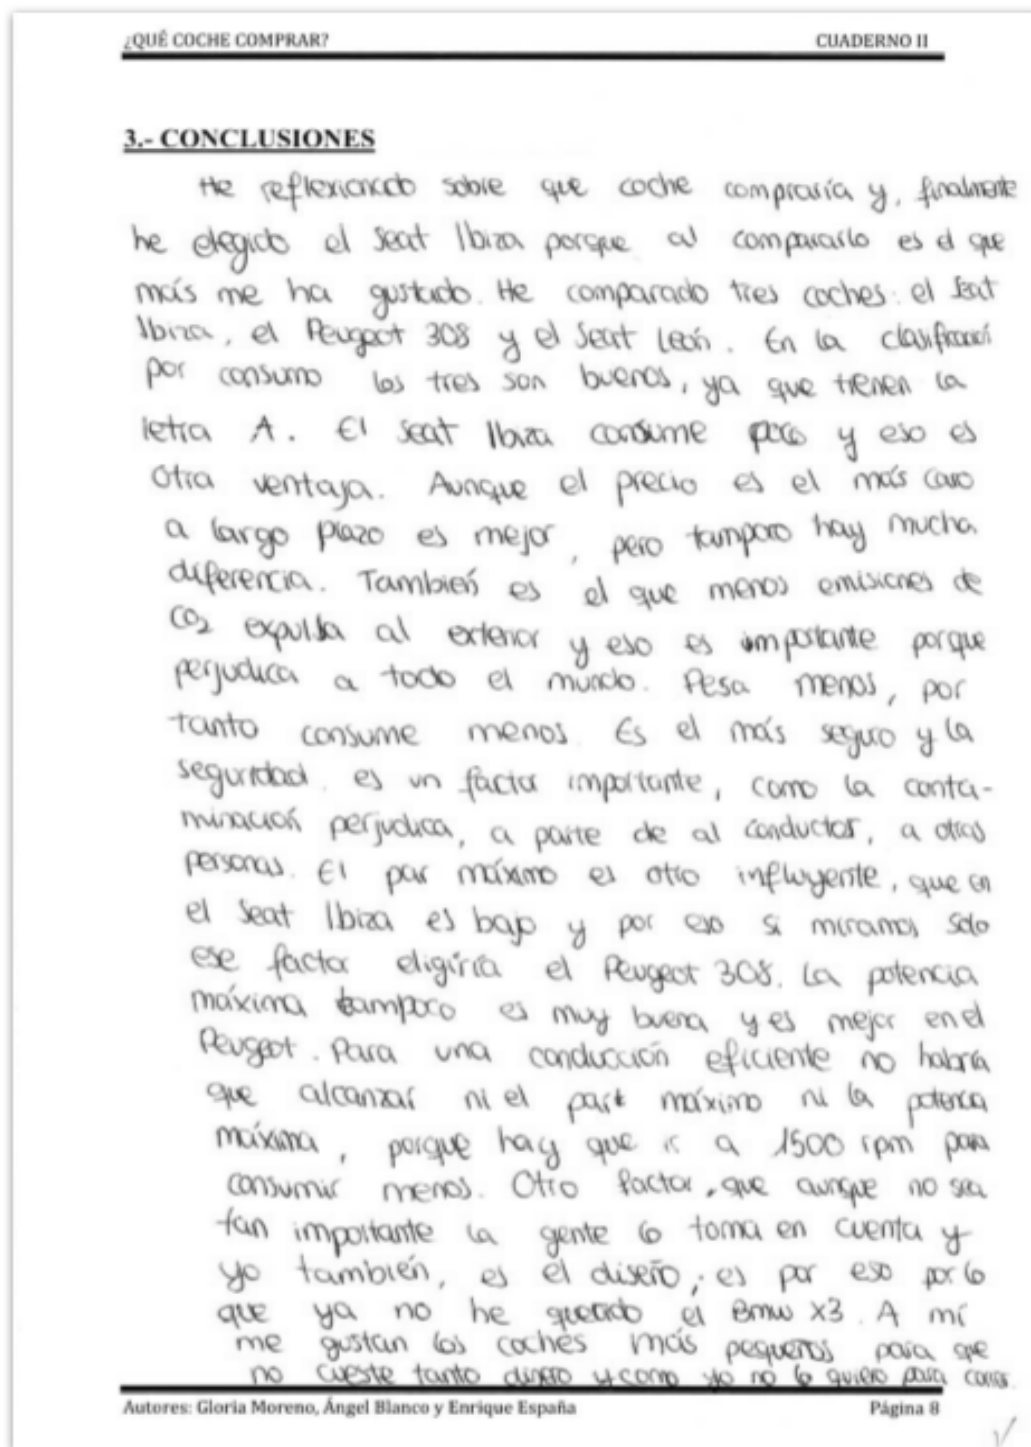 ¿QUÉ COCHE COMPRAR? CUADERNO II
3.- CONCLUSIONES
He reflexionado sobre que coche compraría y, finalmente
he elegido el Seat Ibiza porque al compararlo es el que
más me ha gustado. He comparado tres coches: el Seat
Ibiza, el Peugeot 308 y el Seat León. En la clasificación
por consumo los tres son buenos, ya que tienen la
letra A. El Seat Ibiza consume poco y eso es
otra ventaja. Aunque el precio es el más caro
a largo plazo es mejor, pero tampoco hay mucha
diferencia. También es el que menos emisiones de
CO2 expulsa al exterior y eso es importante porque
perjudica a todo el mundo. Pesa menos, por
tanto consume menos. Es el más seguro y la
seguridad es un factor importante, como la conta-
minación perjudica, a parte de al conductor, a otras
personas. El par máximo es otro influyente, que en
el Seat Ibiza es bajo y por eso si miramos solo
ese factor eligiría el Peugeot 308. La potencia
máxima tampoco es muy buena y es mejor en el
Peugeot. Para una conducción eficiente no habría
que alcanzar ni el par máximo ni la potencia
máxima, porque hay que ir a 1500 rpm para
consumir menos. Otro factor, que aunque no sea
tan importante la gente lo toma en cuenta y
yo también, es el diseño; es por eso por lo
que ya no he querido el Bmw X3. A mí
me gustan los coches más pequeños para que
no cueste tanto dinero y como yo no lo quiero para correr.
Autores: Gloria Moreno, Ángel Blanco y Enrique España Página 8